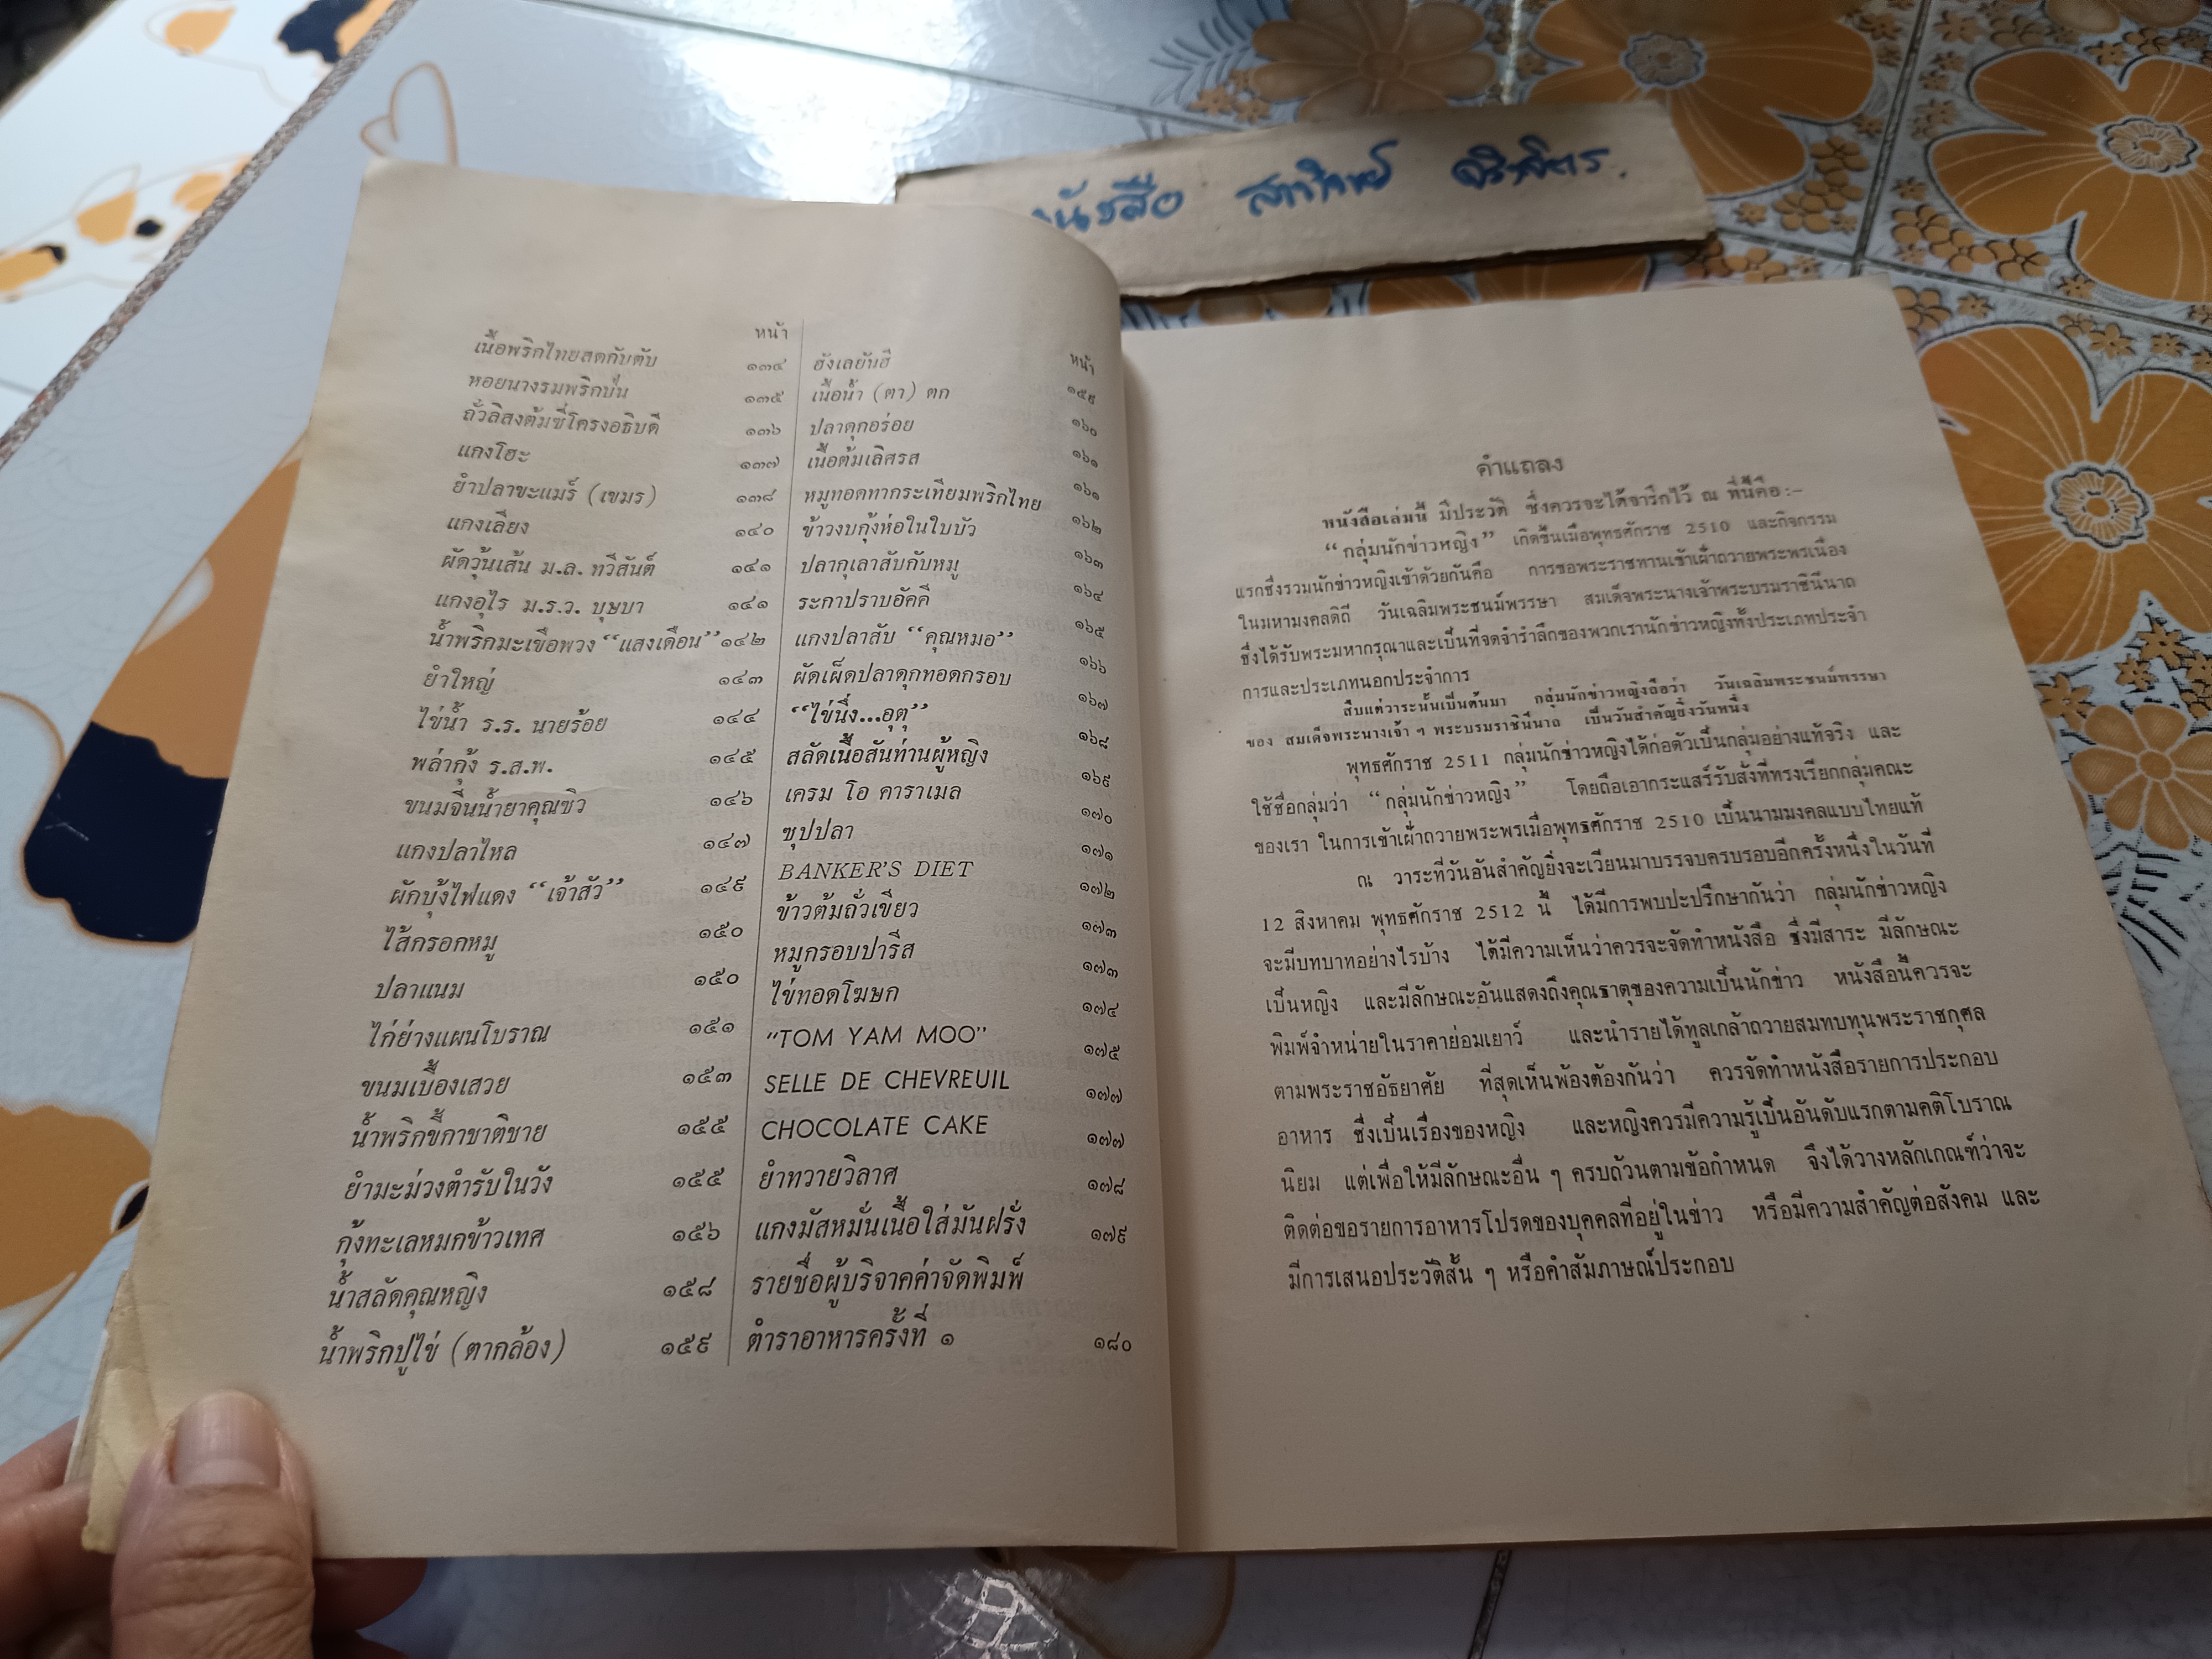 หนังสือ
หน้า
เนื้อพริกไทยสดกับตับ ๑๓๔
หอยนางรมพริกป่น ๑๓๕
ถั่วลิสงต้มซี่โครงอธิบดี ๑๓๖
แกงโฮะ ๑๓๗
ยำปลาขะแมร์ (เขมร) ๑๓๘
แกงเลียง ๑๔๐
ผัดวุ้นเส้น ม.ล. ทวีสันต์ ๑๔๑
แกงอุไร ม.ร.ว. บุษบา ๑๔๑
น้ำพริกมะเขือพวง “แสงเดือน” ๑๔๒
ยำใหญ่ ๑๔๓
ไข่น้ำ ร.ร. นายร้อย ๑๔๔
พล่ากุ้ง ร.ส.พ. ๑๔๕
ขนมจีนน้ำยาคุณซิว ๑๔๖
แกงปลาไหล ๑๔๗
ผักบุ้งไฟแดง “เจ้าสัว” ๑๔๙
ไส้กรอกหมู ๑๕๐
ปลาแนม ๑๕๐
ไก่ย่างแผนโบราณ ๑๕๑
ขนมเบื้องเสวย ๑๕๓
น้ำพริกขี้กาชาติชาย ๑๕๕
ยำมะม่วงตำรับในวัง ๑๕๕
กุ้งทะเลหมกข้าวเทศ ๑๕๖
น้ำสลัดคุณหญิง ๑๕๘
น้ำพริกปูไข่ (ตากล้อง) ๑๕๙
หน้า
ฮังเลยันฮี ๑๕๙
เนื้อน้ำ (ตา) ตก ๑๖๐
ปลาดุกอร่อย ๑๖๑
เนื้อต้มเลิศรส ๑๖๑
หมูทอดทากระเทียมพริกไทย ๑๖๒
ข้าวงบกุ้งห่อในใบบัว ๑๖๓
ปลากุเลาสับกับหมู ๑๖๔
ระกาปราบอัคคี ๑๖๕
แกงปลาสับ “คุณหมอ” ๑๖๖
ผัดเผ็ดปลาดุกทอดกรอบ ๑๖๗
“ไข่นึ่ง...อุตุ” ๑๖๘
สลัดเนื้อสันท่านผู้หญิง ๑๖๙
เครม โอ คาราเมล ๑๗๐
ซุปปลา ๑๗๑
BANKER'S DIET ๑๗๒
ข้าวต้มถั่วเขียว ๑๗๓
หมูกรอบปารีส ๑๗๓
ไข่ทอดโฆษก ๑๗๔
“TOM YAM MOO” ๑๗๕
SELLE DE CHEVREUIL ๑๗๗
CHOCOLATE CAKE ๑๗๗
ยำทวายวิลาศ ๑๗๘
แกงมัสหมั่นเนื้อใส่มันฝรั่ง ๑๗๙
รายชื่อผู้บริจาคค่าจัดพิมพ์
ตำราอาหารครั้งที่ ๑ ๑๘๐
คำแถลง
หนังสือเล่มนี้ มีประวัติ ซึ่งควรจะได้จารึกไว้ ณ ที่นี้คือ :-
“กลุ่มนักข่าวหญิง” เกิดขึ้นเมื่อพุทธศักราช 2510 และกิจกรรม
แรกซึ่งรวมนักข่าวหญิงเข้าด้วยกันคือ การขอพระราชทานเข้าเฝ้าถวายพระพรเนื่อง
ในมหามงคลดิถี วันเฉลิมพระชนม์พรรษา สมเด็จพระนางเจ้าพระบรมราชินีนาถ
ซึ่งได้รับพระมหากรุณาและเป็นที่จดจำรำลึกของพวกเรานักข่าวหญิงทั้งประเภทประจำ
การและประเภทนอกประจำการ
สืบแต่วาระนั้นเป็นต้นมา กลุ่มนักข่าวหญิงถือว่า วันเฉลิมพระชนม์พรรษา
ของ สมเด็จพระนางเจ้า ๆ พระบรมราชินีนาถ เป็นวันสำคัญยิ่งวันหนึ่ง
พุทธศักราช 2511 กลุ่มนักข่าวหญิงได้ก่อตัวเป็นกลุ่มอย่างแท้จริง และ
ใช้ชื่อกลุ่มว่า “กลุ่มนักข่าวหญิง” โดยถือเอากระแสร์รับสั่งที่ทรงเรียกกลุ่มคณะ
ของเรา ในการเข้าเฝ้าถวายพระพรเมื่อพุทธศักราช 2510 เป็นนามมงคลแบบไทยแท้
ณ วาระที่วันอันสำคัญยิ่งจะเวียนมาบรรจบครบรอบอีกครั้งหนึ่งในวันที่
12 สิงหาคม พุทธศักราช 2512 นี้ ได้มีการพบปะปรึกษากันว่า กลุ่มนักข่าวหญิง
จะมีบทบาทอย่างไรบ้าง ได้มีความเห็นว่าควรจะจัดทำหนังสือ ซึ่งมีสาระ มีลักษณะ
เป็นหญิง และมีลักษณะอันแสดงถึงคุณธาตุของความเป็นนักข่าว หนังสือนี้ควรจะ
พิมพ์จำหน่ายในราคาย่อมเยาว์ และนำรายได้ทูลเกล้าถวายสมทบทุนพระราชกุศล
ตามพระราชอัธยาศัย ที่สุดเห็นพ้องต้องกันว่า ควรจัดทำหนังสือรายการประกอบ
อาหาร ซึ่งเป็นเรื่องของหญิง และหญิงควรมีความรู้เป็นอันดับแรกตามคติโบราณ
นิยม แต่เพื่อให้มีลักษณะอื่น ๆ ครบถ้วนตามข้อกำหนด จึงได้วางหลักเกณฑ์ว่าจะ
ติดต่อขอรายการอาหารโปรดของบุคคลที่อยู่ในข่าว หรือมีความสำคัญต่อสังคม และ
มีการเสนอประวัติสั้น ๆ หรือคำสัมภาษณ์ประกอบ